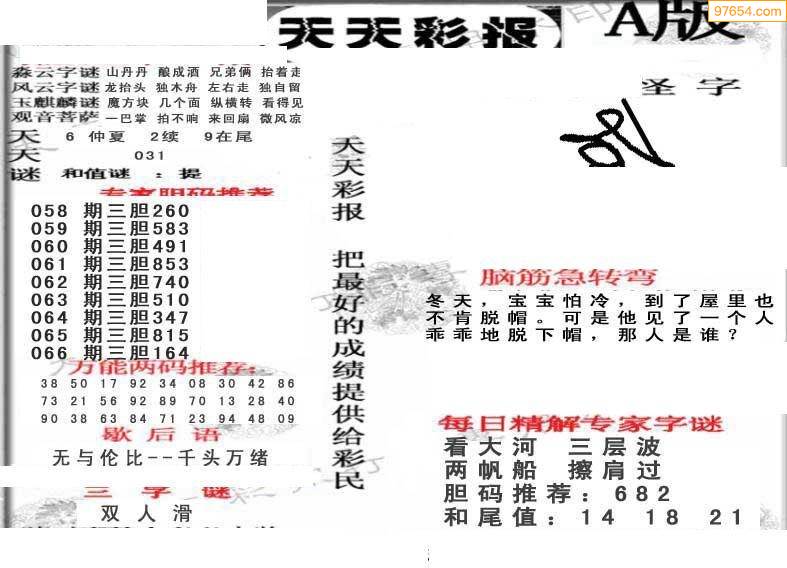 天天彩报
A版
97654.com
淼云字谜 山丹丹 酿成酒 兄弟俩 抬着走
风云字谜 龙抬头 独木舟 左右走 独自留
玉麒麟谜 魔方块 几个面 纵横转 看得见
观音菩萨 一巴掌 拍不响 来回扇 微风凉
天 6 仲夏 2续 9在尾
天 031
谜 和值谜 : 提
专家胆码推荐
058 期三胆260
059 期三胆583
060 期三胆491
061 期三胆853
062 期三胆740
063 期三胆510
064 期三胆347
065 期三胆815
066 期三胆164
万能两码推荐:
38 50 17 92 34 08 30 42 86
73 21 56 92 89 70 13 28 40
90 38 63 84 71 23 94 48 09
歇后语
无与伦比--千头万绪
三字谜
双人滑
天天彩报 把最好的成绩提供给彩民
圣字
脑筋急转弯
冬天，宝宝怕冷，到了屋里也
不肯脱帽。可是他见了一个人
乖乖地脱下帽，那人是谁？
每日精解专家字谜
看大河 三层波
两帆船 擦肩过
胆码推荐: 682
和尾值: 14 18 21